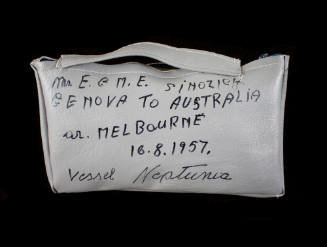 Mr E. & M. E. SINOZICH
GENOVA TO AUSTRALIA
ar. MELBOURNE
16.8.1957.
Vessel Neptunia